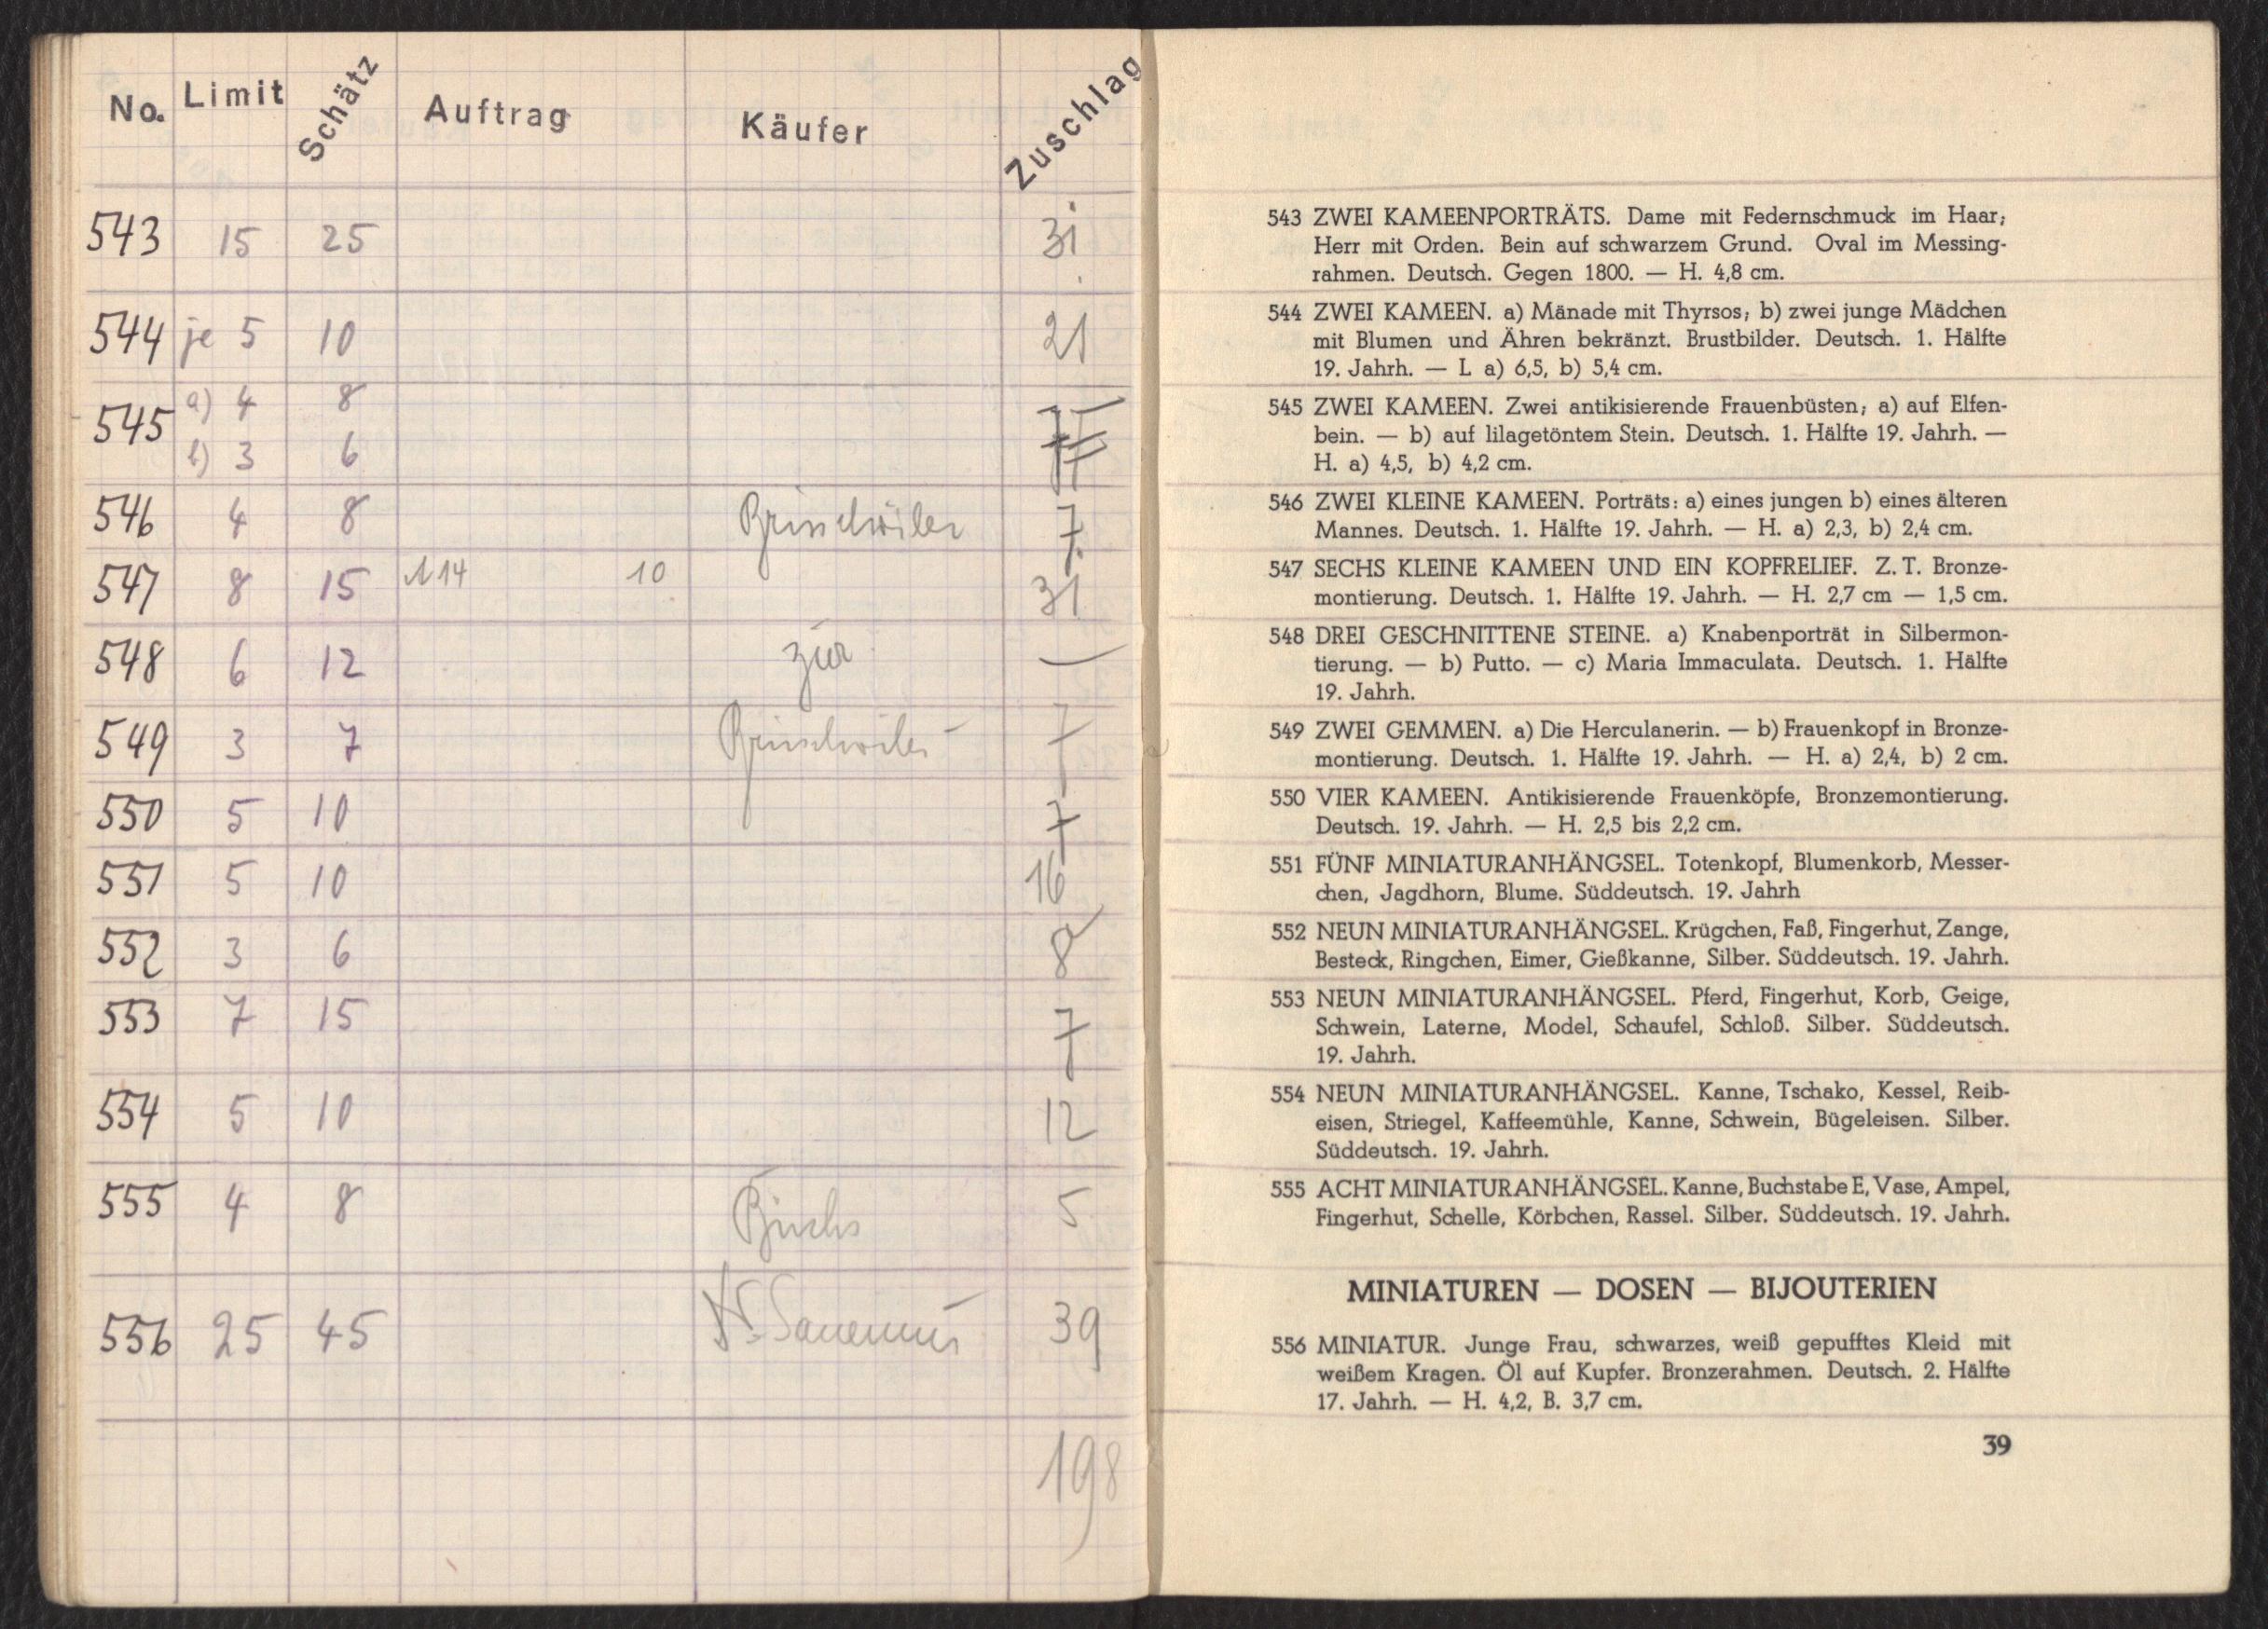 No. Limit Schätz Auftrag Käufer Zuschlag
543 15 25 31
544 je 5 10 21
545 a) 4 8
b) 3 6
546 4 8 7
547 8 15 114 10 31
548 6 12 zur —
549 3 7 7
550 5 10 7
551 5 10 16
552 3 6 8
553 7 15 7
554 5 10 12
555 4 8 5
556 25 45 39
198
543 ZWEI KAMEENPORTRÄTS. Dame mit Federnschmuck im Haar;
Herr mit Orden. Bein auf schwarzem Grund. Oval im Messing-
rahmen. Deutsch. Gegen 1800. — H. 4,8 cm.
544 ZWEI KAMEEN. a) Mänade mit Thyrsos; b) zwei junge Mädchen
mit Blumen und Ähren bekränzt. Brustbilder. Deutsch. 1. Hälfte
19. Jahrh. — L a) 6,5, b) 5,4 cm.
545 ZWEI KAMEEN. Zwei antikisierende Frauenbüsten; a) auf Elfen-
bein. — b) auf lilagetöntem Stein. Deutsch. 1. Hälfte 19. Jahrh. —
H. a) 4,5, b) 4,2 cm.
546 ZWEI KLEINE KAMEEN. Porträts: a) eines jungen b) eines älteren
Mannes. Deutsch. 1. Hälfte 19. Jahrh. — H. a) 2,3, b) 2,4 cm.
547 SECHS KLEINE KAMEEN UND EIN KOPFRELIEF. Z. T. Bronze-
montierung. Deutsch. 1. Hälfte 19. Jahrh. — H. 2,7 cm — 1,5 cm.
548 DREI GESCHNITTENE STEINE. a) Knabenporträt in Silbermon-
tierung. — b) Putto. — c) Maria Immaculata. Deutsch. 1. Hälfte
19. Jahrh.
549 ZWEI GEMMEN. a) Die Herculanerin. — b) Frauenkopf in Bronze-
montierung. Deutsch. 1. Hälfte 19. Jahrh. — H. a) 2,4, b) 2 cm.
550 VIER KAMEEN. Antikisierende Frauenköpfe, Bronzemontierung.
Deutsch. 19. Jahrh. — H. 2,5 bis 2,2 cm.
551 FÜNF MINIATURANHÄNGSEL. Totenkopf, Blumenkorb, Messer-
chen, Jagdhorn, Blume. Süddeutsch. 19. Jahrh
552 NEUN MINIATURANHÄNGSEL. Krügchen, Faß, Fingerhut, Zange,
Besteck, Ringchen, Eimer, Gießkanne, Silber. Süddeutsch. 19. Jahrh.
553 NEUN MINIATURANHÄNGSEL. Pferd, Fingerhut, Korb, Geige,
Schwein, Laterne, Model, Schaufel, Schloß. Silber. Süddeutsch.
19. Jahrh.
554 NEUN MINIATURANHÄNGSEL. Kanne, Tschako, Kessel, Reib-
eisen, Striegel, Kaffeemühle, Kanne, Schwein, Bügeleisen. Silber.
Süddeutsch. 19. Jahrh.
555 ACHT MINIATURANHÄNGSEL. Kanne, Buchstabe E, Vase, Ampel,
Fingerhut, Schelle, Körbchen, Rassel. Silber. Süddeutsch. 19. Jahrh.
MINIATUREN — DOSEN — BIJOUTERIEN
556 MINIATUR. Junge Frau, schwarzes, weiß gepufftes Kleid mit
weißem Kragen. Öl auf Kupfer. Bronzerahmen. Deutsch. 2. Hälfte
17. Jahrh. — H. 4,2, B. 3,7 cm.
39